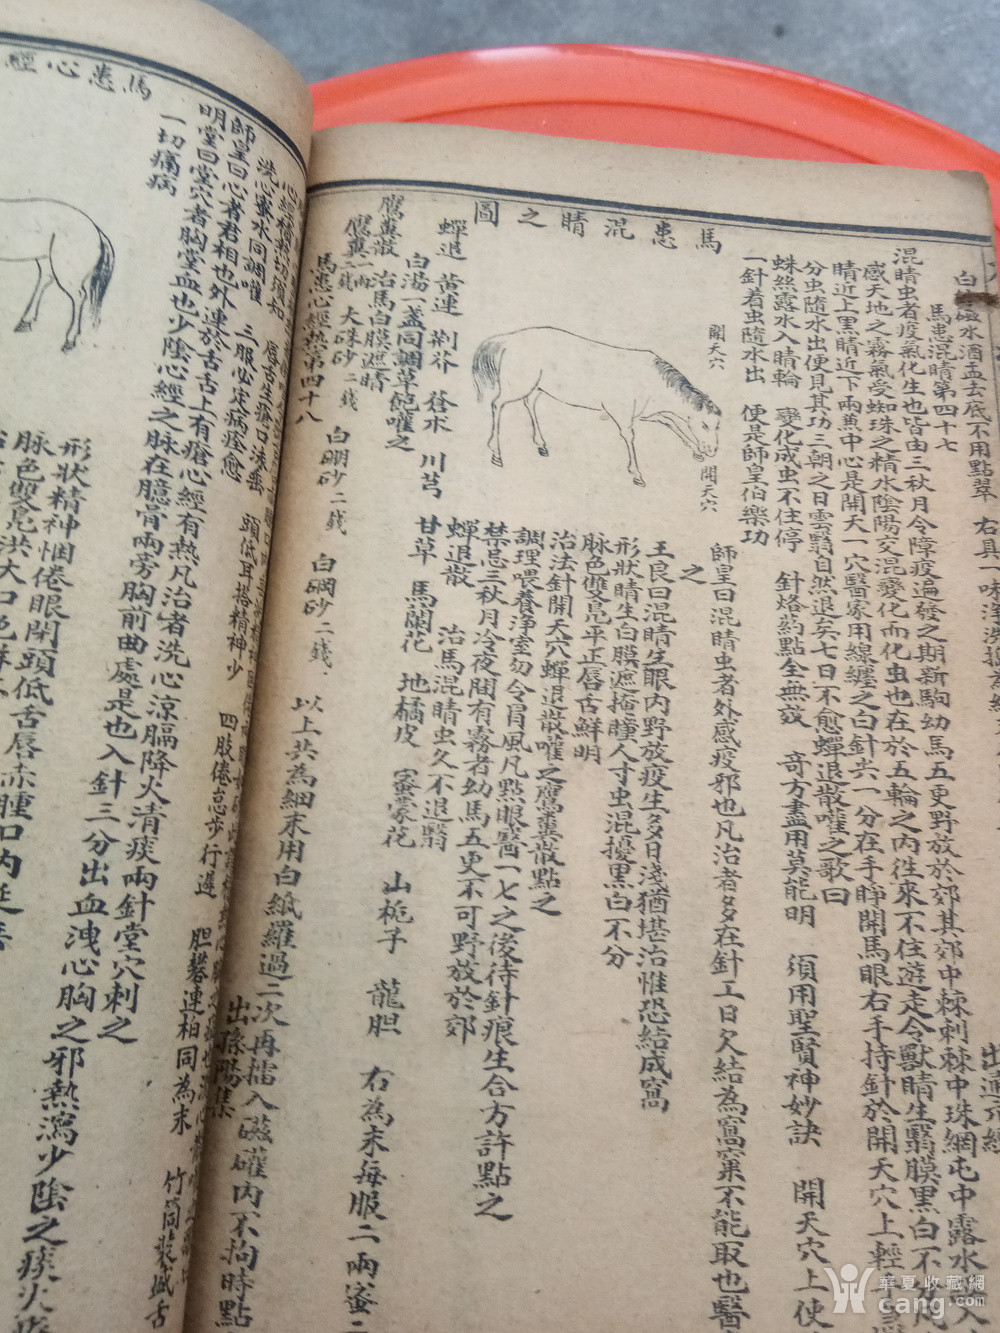 馬患混睛之圖
白磁水酒盂去底不用點翠 右具一味
出連
馬患混睛第四十七
混睛虫者疫氣化生也皆由三秋月令障疫遍發之期新駒幼馬五更野放於郊其郊中棘刺棘中珠網屯中露水
感天地之霧氣受蜘珠之精水陰陽交混變化而化虫也在於五輪之內徃來不住遊走令獸睛生翳膜黑白不
睛近上黑睛近下兩𤋮中心是開天一穴醫家用線纏之白針尖一分在手睜開馬眼右手持針於開天穴上輕手
分虫隨水出便見其功三朝之日雲翳自然退矣七日不愈蟬退散嚾之歌曰
蛛絲露水入睛輪 變化成虫不住停 針烙葯點全無效 奇方盡用莫能明 須用聖賢神妙訣 開天穴上使
一針着虫隨水出 便是師皇伯樂功
開天穴
開天穴
師皇曰混睛虫者外感疫邪也凡治者多在針工日久結為窩窠不能取也醫
之
王良曰混睛生眼內野放疫生多日淺猶堪治惟恐結成窩
形狀睛生白膜遮掩瞳人寸虫混擾黑白不分
脉色雙鳧平正唇舌鮮明
治法針開天穴蟬退散嚾之鷹糞散點之
調理喂養淨室勿令冒風凡點眼醫一七之後待針痕生合方許點之
禁忌三秋月冷夜閒有霧者幼馬五更不可野放於郊
蟬退散 治馬混睛虫久不退翳
蟬退 黃連 荆芥 蒼朮 川芎 甘草 馬蘭花 地橘皮 蜜蒙花 山栀子 龍胆 右為末每服二兩蜜二
白湯一盞同調草飽嚾之
鷹糞散 治馬白膜遮睛
鷹糞一兩 大硃砂二錢 白硼砂二錢 白碙砂二錢 以上共為細末用白紙羅過二次再擂入磁礶內不拘時點
馬患心經熱第四十八
出孫陽集
馬患心經
洗心蜜水同調嚾 三服必定病痊愈 頭低耳搭精神少 四肢倦怠步行遲 胆礬連柏同為末 竹筒裝盛舌
師皇曰心者君相也外連於舌舌上有瘡心經有熱凡治者洗心涼膈降火清痰兩針堂穴刺之
明堂曰堂穴者胸堂血也少陰心經之脉在臆骨兩旁胸前曲處是也入針三分出血洩心胸之邪熱瀉少陰之痰火
一切痛病
形狀精神悃倦眼閉頭低舌唇赤腫口內涎
脉色雙鳧洪大口色鮮
華夏收藏網
cang.com